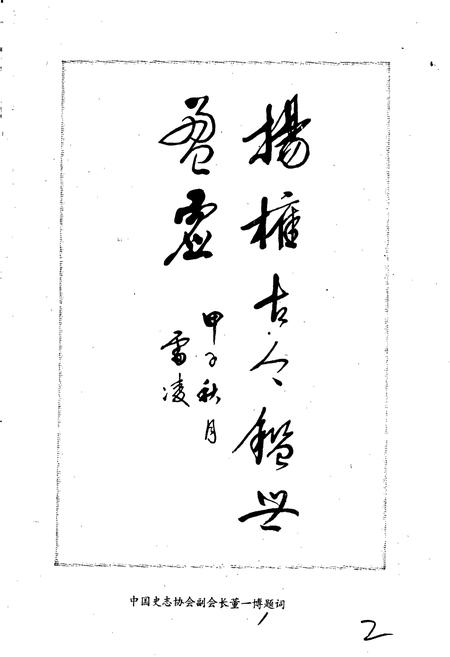 揚榷古今鑑世
盈虛
甲子秋月
雷凌
中国史志协会副会长董一博题词
2